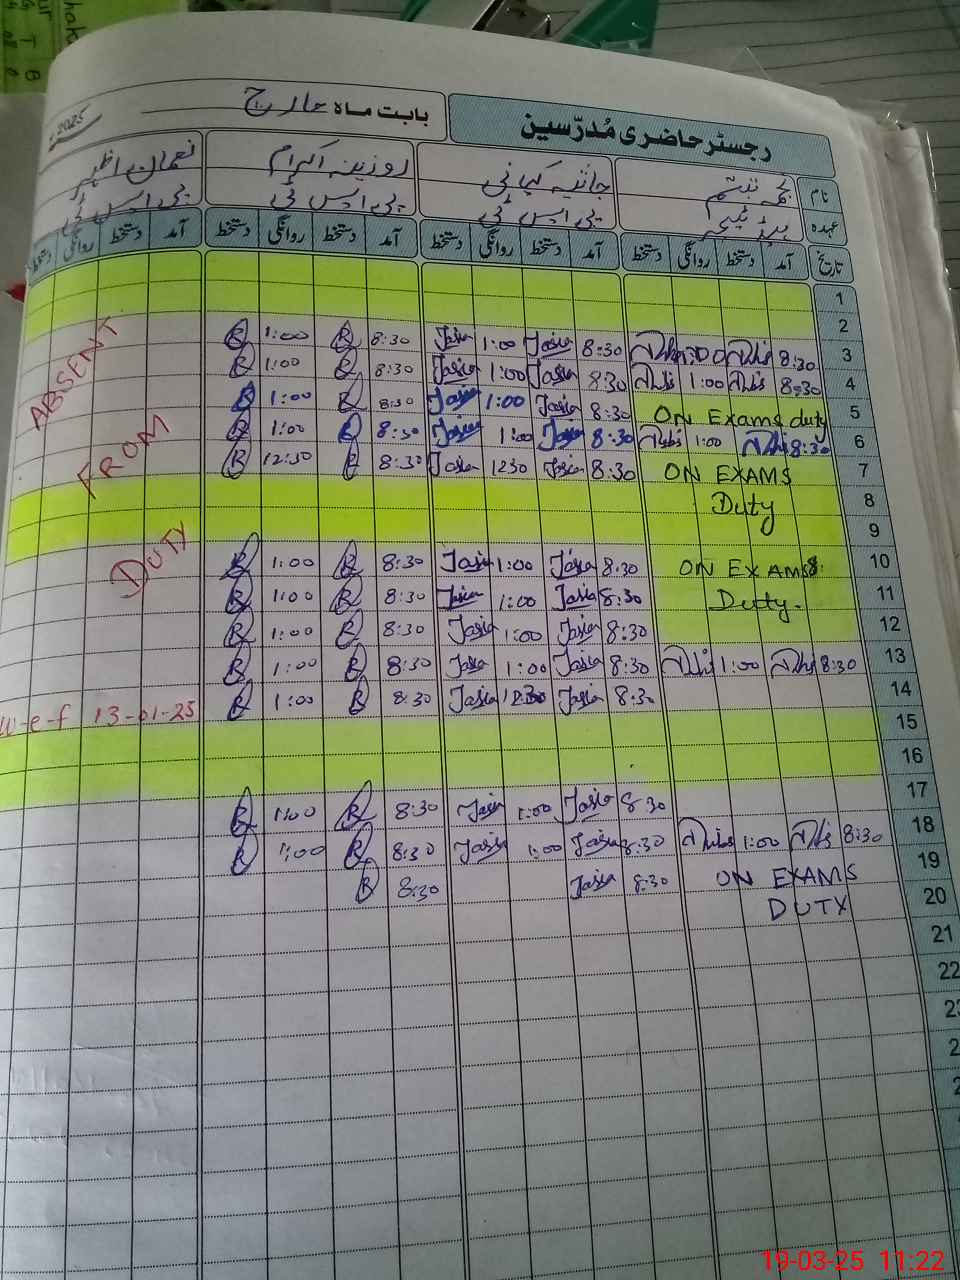 رجسٹر حاضری مُدرّسین
بابت ماہ مارچ 2025
نام نجمہ تبسم جاثیہ کیانی روزینہ اکرام نعمان اظہر
عہدہ ہیڈ ٹیچر پی ایس ٹی پی ایس ٹی پی ایس ٹی
تاریخ آمد دستخط روانگی دستخط آمد دستخط روانگی دستخط آمد دستخط روانگی دستخط آمد دستخط روانگی دستخط
1
2
3 8:30 1:00 8:30 Jasia 1:00 Jasia 8:30 R 1:00 R
4 8:30 1:00 8:30 Jasia 1:00 Jasia 8:30 R 1:00 R
5 ON Exams duty 8:30 Jasia 1:00 Jasia 8:30 R 1:00 R
6 8:30 1:00 8:30 Jasia 1:00 Jasia 8:30 R 1:00 R
7 ON EXAMS 8:30 Jasia 1230 Jasia 8:30 R 12:30 R
8 Duty
9
10 ON EXAMS 8:30 Jasia 1:00 Jasia 8:30 R 1:00 R
11 Duty. 8:30 Jasia 1:00 Jasia 8:30 R 1:00 R
12 8:30 Jasia 1:00 Jasia 8:30 R 1:00 R
13 8:30 1:00 8:30 Jasia 1:00 Jasia 8:30 R 1:00 R
14 8:30 Jasia 12:30 Jasia 8:30 R 1:00 R
15
16
17 8:30 Jasia 1:00 Jasia 8:30 R 1:00 R
18 8:30 1:00 8:30 Jasia 1:00 Jasia 8:30 R 1:00 R
19 ON EXAMS 8:30 Jasia 8:30 R
20 DUTY
21
22
ABSENT
FROM
DUTY
W-e-f 13-01-25
19-03-25 11:22